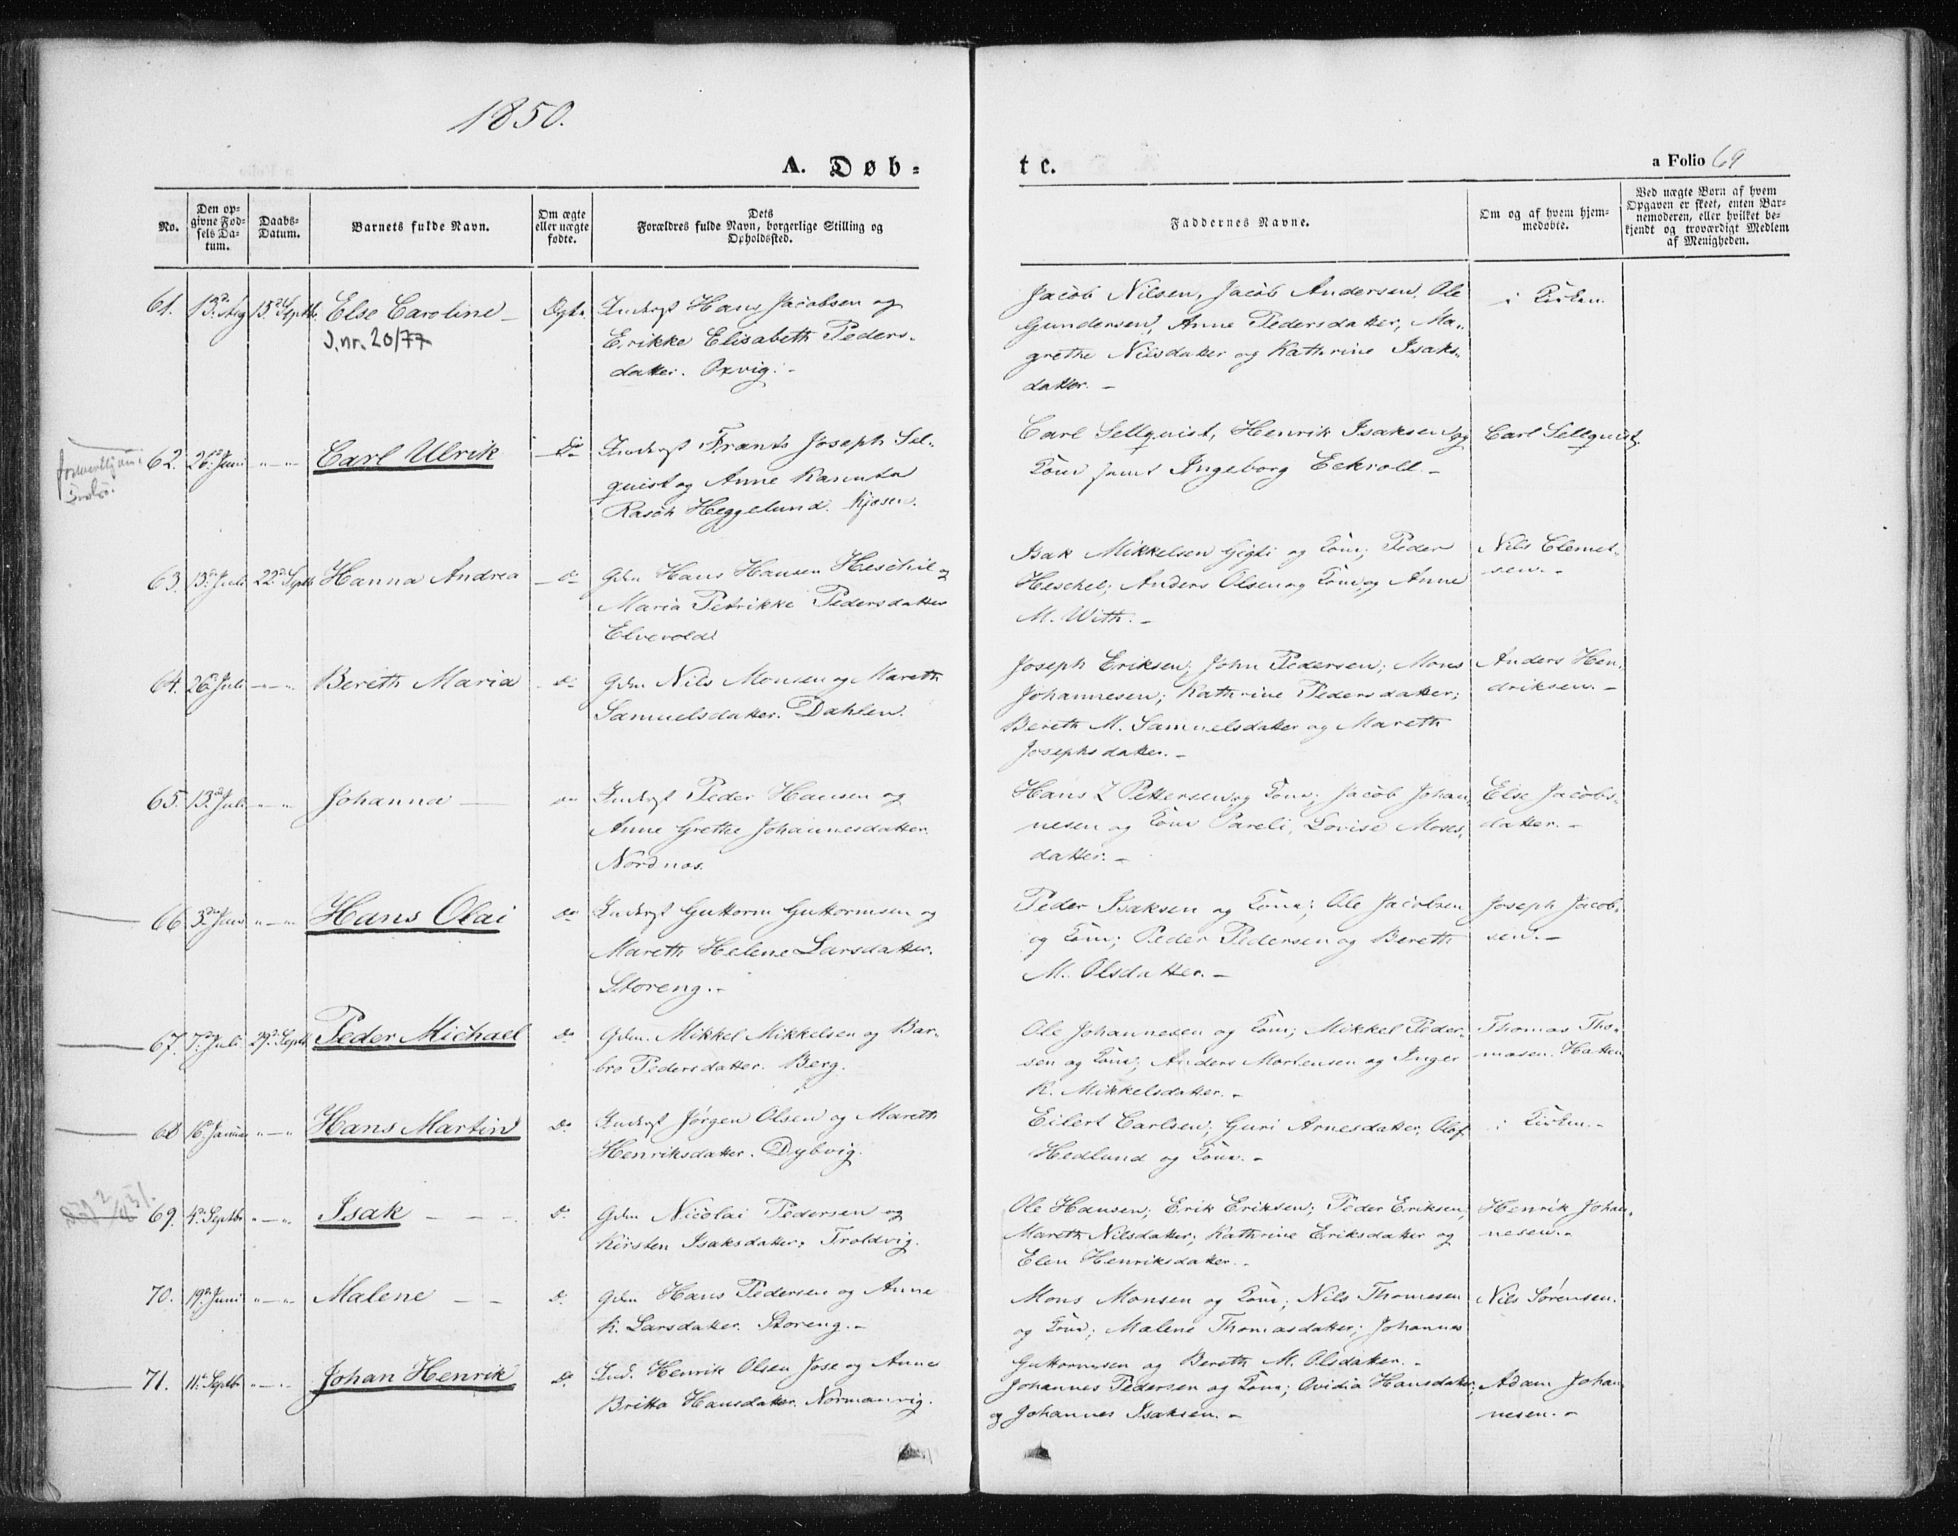 1850.
A. Døb-
tc.
a Folio 69
No.
Den op-
givne Fød-
sels Da-
tum.
Daabs-
Datum.
Barnets fulde Navn.
Om ægte
eller uægte
fødte.
Dets
Forældres fulde Navn, borgerlige Stilling og
Opholdssted.
Faddernes Navne.
Om og af hvem hjem-
medøbte.
Ved uægte Born af hvem
Opgaven er skeet, enten Bar-
nemoderen, eller hvilket be-
kjendt og troværdigt Medlem
af Menigheden.
61. 13de Aug 15de Septb. Else Caroline – Hans Jacobsen og
J.nr. 20/77
Erikke Elisabeth Peders-
datter. Oxvig. -
Jacob Nilsen, Jacob Andersen, Ole
Gundersen, Anne Pedersdatter, Ma-
grethe Nilsdatter og Kathrine Isaks-
datter. -
i Kirken.
62. 26de Juni " — " Carl Ulrik Do Frants Joseph Sel-
quist og Anne Kanuta
Rasch Heggelund. Kjosen.
Carl Sellquist, Henrik Isaksen og
Kone samt Ingeborg Eckroll -
Carl Sellquist.
63. 13de Juli 22de Septb Hanna Andrea - do Gdm Hans Hansen Heschel og
Maria Petrikke Pedersdatter
Elvevold.
Isak Mikkelsen Gigli og Kone; Peder
Heschel; Anders Olsen og Kone, og Anne
M. With. -
Nils Clemet-
sen. -
64. 26de Juli " — " Bereth Maria do Gdm Nils Monsen og Mareth
Samuelsdatter. Dahlen.
Joseph Eriksen; John Pedersen; Mons
Johannesen; Kathrine Pedersdatter;
Bereth M. Samuelsdatter og Mareth
Josephsdatter. -
Anders Hen-
driksen. -
65. 13de Juli " — " Johanna — do Peder Hansen og
Anne Grethe Johannesdatter.
Nordnes.
Hans Z Pettersen og Kone; Jacob Johan-
nesen og Kone Pareli, Lovise Moses-
datter. -
Else Jacobs-
datter. -
66. 3de " — " Hans Olai do Guttorm Guttormsen og
Mareth Helene Larsdatter.
Storeng. -
Peder Isaksen og Kone; Ole Jacobsen
og Kone; Peder Pedersen og Bereth
M. Olsdatter. -
Joseph Jacob-
sen. -
67. 7de Juli 29de Septb Peder Michael do Gdm. Mikkel Mikkelsen og Bar-
bro Pedersdatter. Berg.
Ole Johannesen og Kone; Mikkel Peder-
sen og Kone; Anders Mortensen og Inger
K. Mikkelsdatter. -
Thomas Tho-
masen. Hatten
68 16de Januar " — " Hans Martin do Jørgen Olsen og Mareth
Henriksdatter. Dybvig.
Eilert Carlsen; Guri Arnesdatter, Olof
Hedlund og Kone. -
i Kirken. -
69. 4de Septbr " — " Isak - - - do Gdm Nicolai Pedersen og
Kirsten Isaksdatter. Troldvig.
Ole Hansen; Erik Eriksen; Peder Eriksen,
Mareth Nilsdatter; Kathrine Eriksdatter og
Elen Henriksdatter. -
Henrik Johan-
nesen. -
70. 19de Juni " — " Malene - - do Gdm Hans Pedersen og Anne
K. Larsdatter. Storeng. -
Mons Monsen og Kone; Nils Thomesen
og Kone; Malene Thomasdatter; Johannes
Guttormsen og Bereth M. Olsdatter. -
Nils Sørensen.
71. 11te Septbr " — " Johan Henrik do Ind. Henrik Olsen Jose og Anne
Britta Hansdatter. Normanvig.
Johannes Pedersen og Kone; Ovidia Hansdatter,
og Johannes Isaksen. -
Adam Johan-
nesen. -